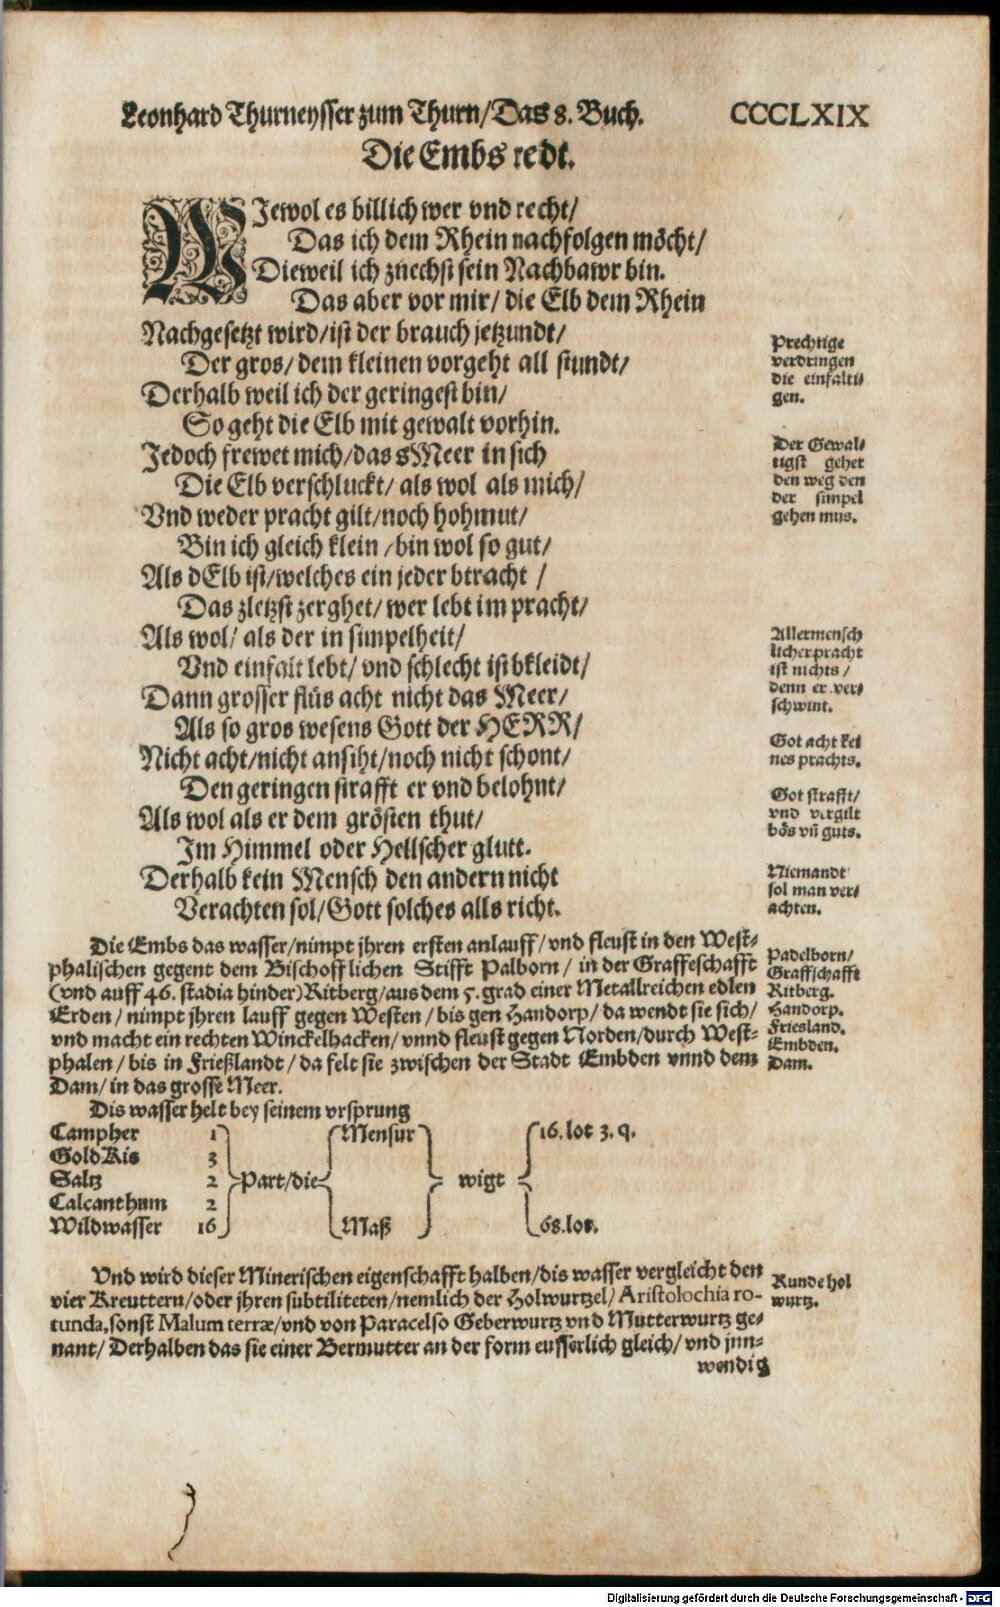 Leonhard Thurneysser zum Thurn/Das 8. Buch. CCCLXIX
Die Embs redt.
WJewol es billich wer vnd recht/
Das ich dem Rhein nachfolgen möcht/
Dieweil ich znechst sein Nachbawr bin.
Das aber vor mir/ die Elb dem Rhein
Nachgesetzt wird/ist der brauch jetzundt/
Der gros/ dem kleinen vorgeht all stundt/
Derhalb weil ich der geringest bin/
So geht die Elb mit gewalt vorhin.
Jedoch frewet mich/das sMeer in sich
Die Elb verschluckt/ als wol als mich/
Vnd weder pracht gilt/noch hohmut/
Bin ich gleich klein /bin wol so gut/
Als dElb ist/welches ein jeder btracht /
Das zletzst zerghet/ wer lebt im pracht/
Als wol/ als der in simpelheit/
Vnd einfalt lebt/ vnd schlecht ist bkleidt/
Dann grosser flüs acht nicht das Meer/
Als so gros wesens Gott der HERR/
Nicht acht/nicht ansiht/noch nicht schont/
Den geringen strafft er vnd belohnt/
Als wol als er dem grösten thut/
Im Himmel oder Hellscher glutt.
Derhalb kein Mensch den andern nicht
Verachten sol/Gott solches alls richt.
Prechtige
verdringen
die einfalti-
gen.
Der Gewal-
tigst gehet
den weg den
der simpel
gehen mus.
Allermensch
licher pracht
ist nichts /
denn er ver-
schwint.
Got acht kei
nes prachts.
Got strafft/
vnd vergilt
bös vñ guts.
Niemandt
sol man ver-
achten.
Die Embs das wasser/nimpt jhren ersten anlauff/ vnd fleust in den West-
phalischen gegent dem Bischofflichen Stifft Palborn / in der Graffeschafft
(vnd auff 46. stadia hinder) Ritberg/aus dem 5. grad einer Metallreichen edlen
Erden / nimpt jhren lauff gegen Westen / bis gen Handorp/ da wendt sie sich/
vnd macht ein rechten Winckelhacken/ vnnd fleust gegen Norden/durch West-
phalen / bis in Frießlandt / da felt sie zwischen der Stadt Embden vnnd dem
Dam/ in das grosse Meer.
Padelborn/
Graffschafft
Ritberg.
Handorp.
Friesland.
Embden.
Dam.
Dis wasser helt bey seinem vrsprung
Campher 1
Gold Kis 3
Saltz 2
Calcanthum 2
Wildwasser 16
Part/die
Mensur
Maß
wigt
16. lot 3. q.
68. lot.
Vnd wird dieser Minerischen eigenschafft halben/dis wasser vergleicht den
vier Kreuttern/oder jhren subtiliteten/nemlich der Holwurtzel/ Aristolochia ro-
tunda, sonst Malum terræ/vnd von Paracelso Geberwurtz vnd Mutterwurtz ge-
nant/ Derhalben das sie einer Bermutter an der form eusserlich gleich/ vnd jnn-
wendig
Runde hol
wurtz.
Digitalisierung gefördert durch die Deutsche Forschungsgemeinschaft - DFG